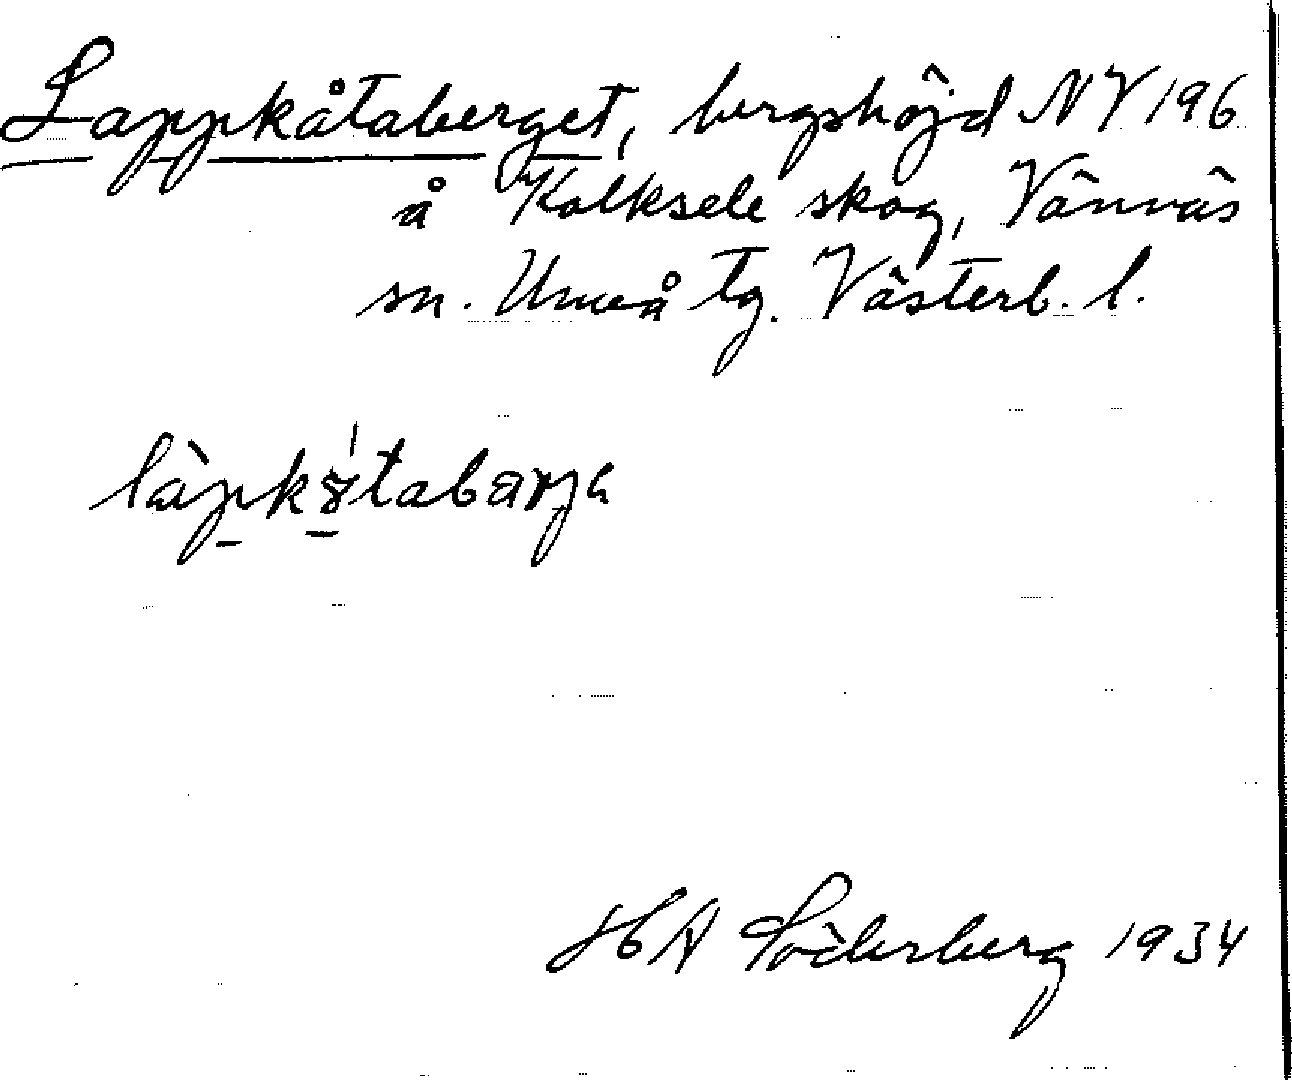 Lappkåtaberget, bergshöjd NV 196
å Kolksele skog, Vännäs
sn. Umeå tg. Västerb. l.
HA Söderberg 1934